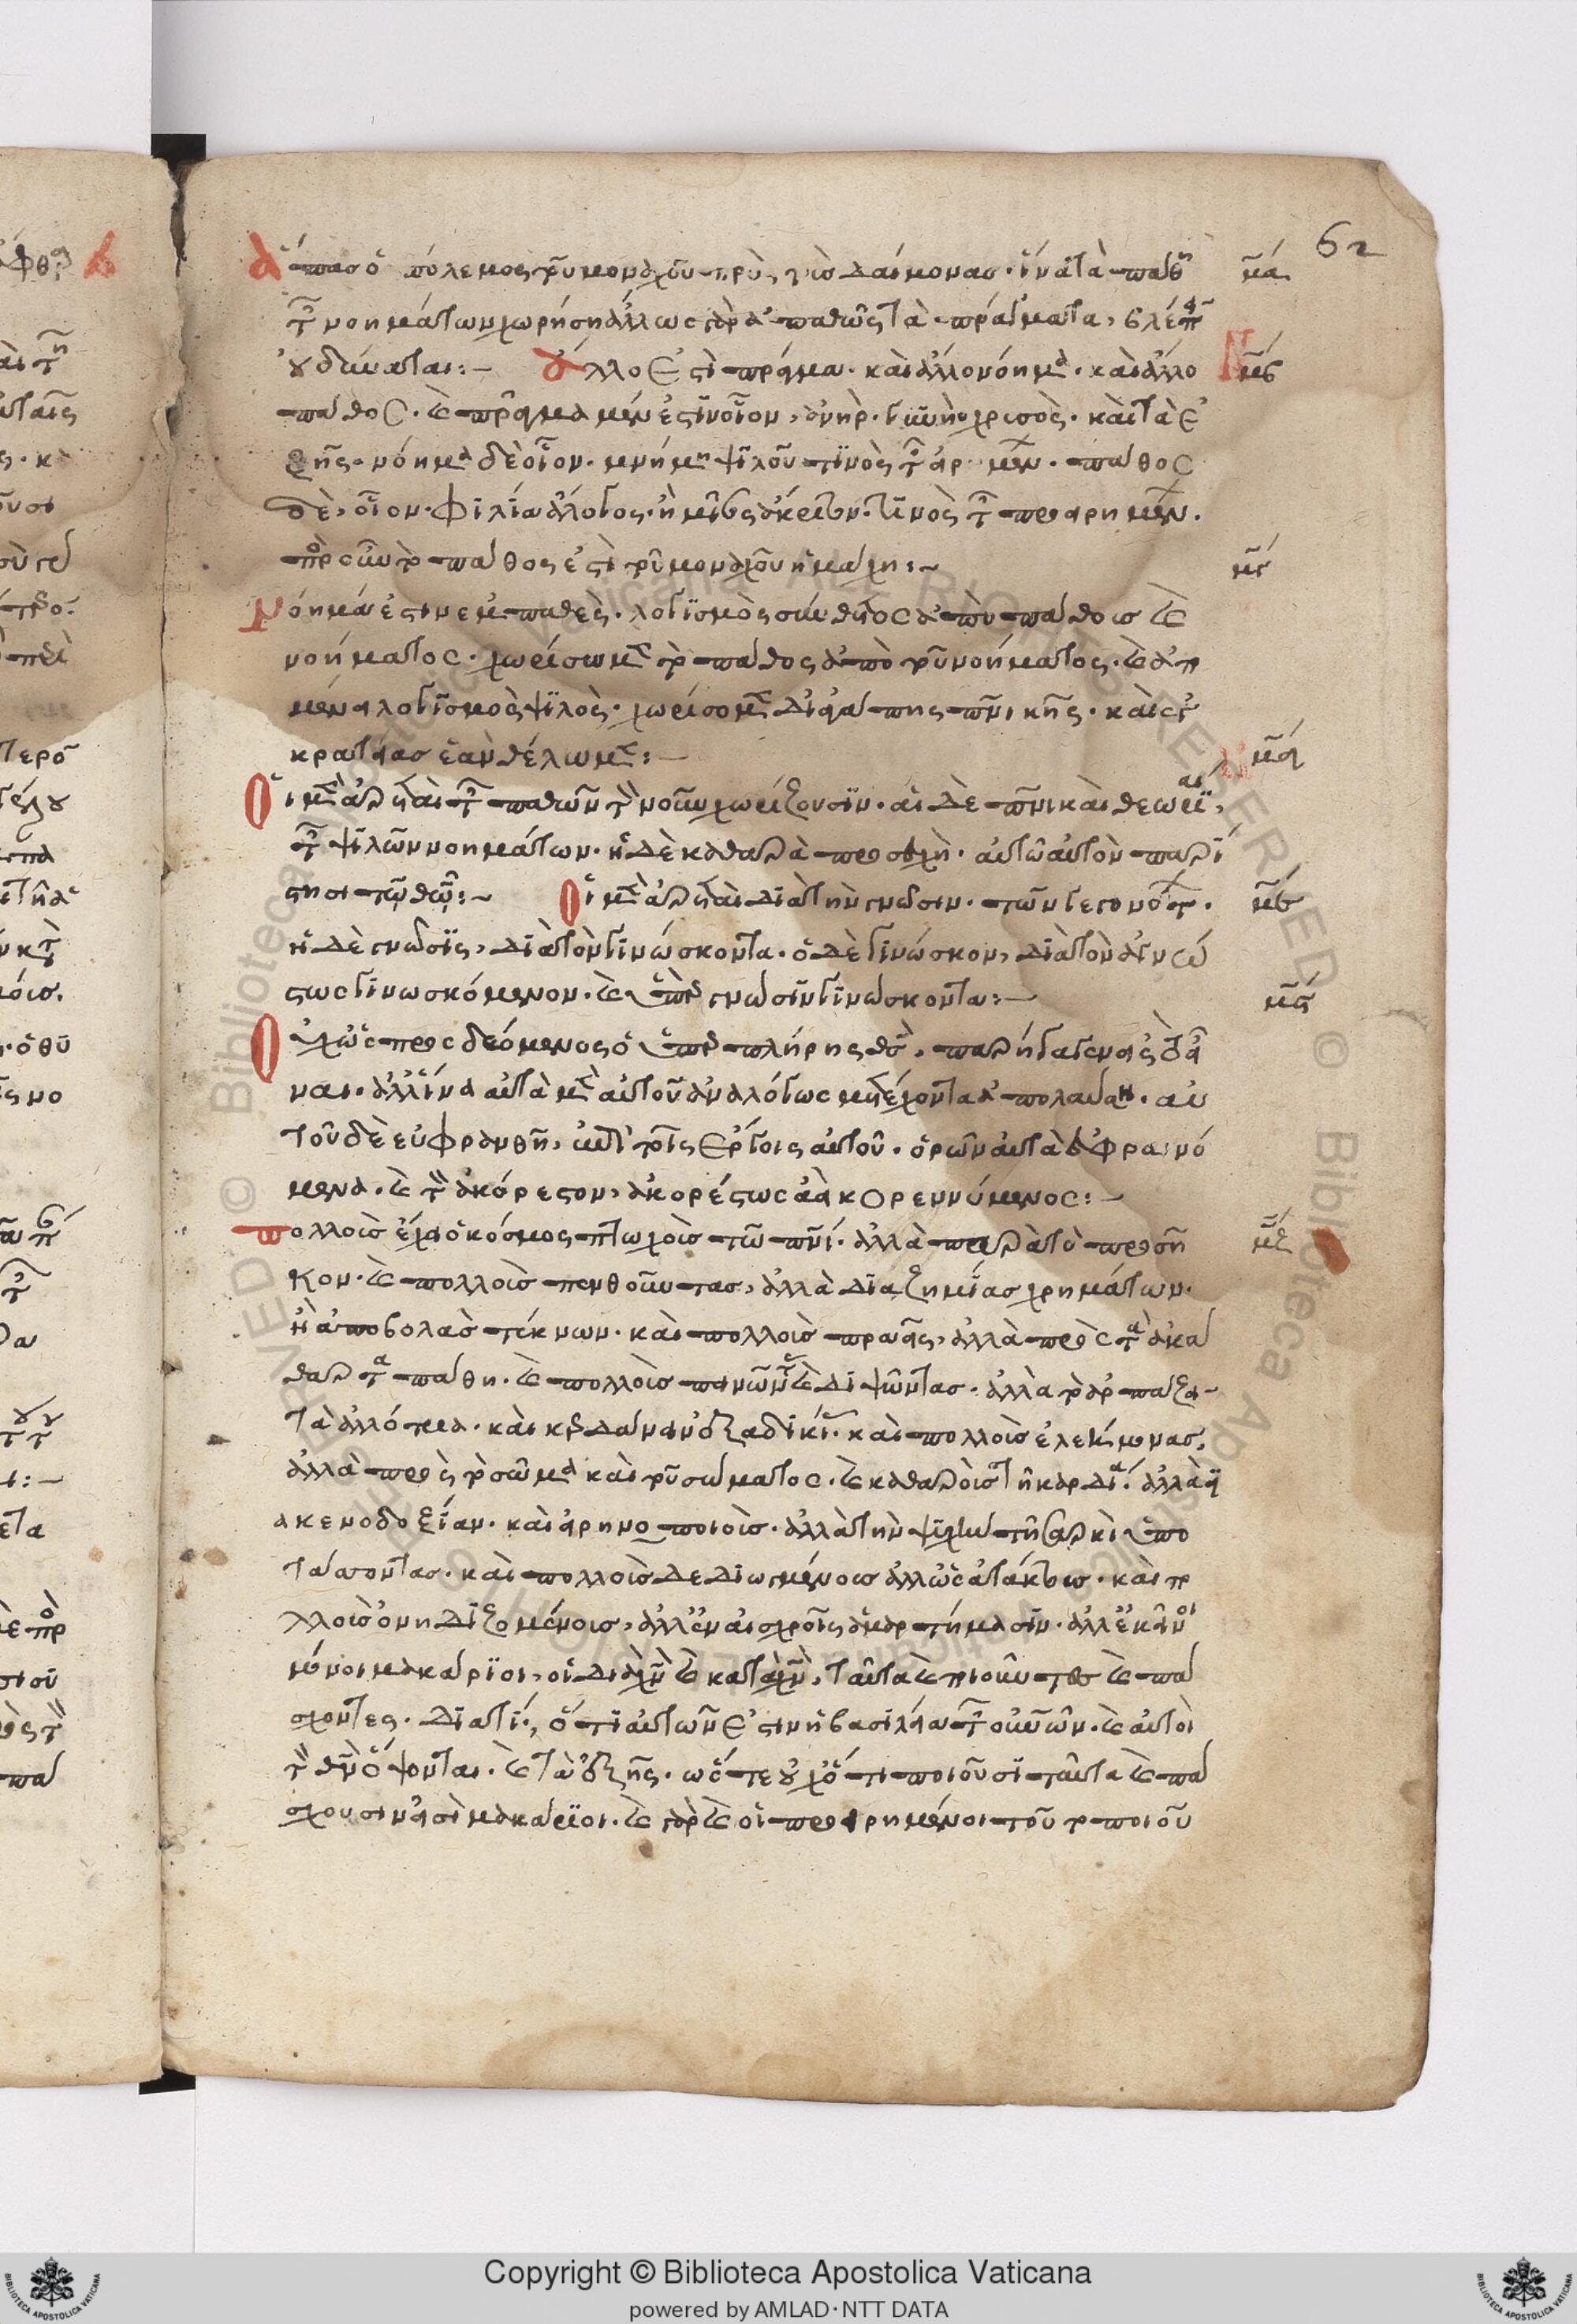 62
Ἅπας ὁ πόλεμος τοῦ μοναχοῦ πρὸς τοὺς δαίμονας· ἵνα τὰ πάθη μα
τῶν νοημάτων χωρήση ἄλλως γὰρ ἀπαθῶς τὰ πράγματα, βλέπειν
οὐ δύναται:— Ἄλλο ἐστὶ πρᾶγμα· καὶ ἄλλο νόημα· καὶ ἄλλο μβ
πάθος· καὶ πρᾶγμα μέν ἐστιν οἷον, ἀνὴρ· γυνὴ· χρυσὸς· καὶ τὰ ἑ
ξῆς· νόημα δὲ οἷον· μνήμη ψιλοῦ τινὸς τῶν εἰρημένων· πάθος
δὲ, οἷον· φιλία ἄλογος· ἢ μῖσος ἄκριτον· τινὸς τῶν προειρημένων·
πρὸς οὖν τὸ πάθος ἐστὶ τοῦ μοναχοῦ ἡ μάχη:~ μγ
Νόημά ἐστιν ἐμπαθὲς· λογισμὸς σύνθετος ἀπὸ πάθους καὶ
νοήματος· χωρίσωμεν τὸ πάθος ἀπὸ τοῦ νοήματος· καὶ ἀπο
μένει λογισμὸς ψιλὸς· χωρίσομεν δι' ἀγάπης πνευματικῆς· καὶ ἐγ
κρατείας ἐὰν θέλωμεν:— μδ
Αἱ μὲν ἀρεταὶ τῶν παθῶν τὸν νοῦν χωρίζουσιν· αἱ δὲ πνευματικαὶ θεωρίαι,
τῶν ψιλῶν νοημάτων· ἡ δὲ καθαρὰ προσευχὴ· αὐτῶ αὐτὸν παρί
στησι τῷ θεῷ:~ Αἱ μὲν ἀρεταὶ διὰ τὴν γνῶσιν· τῶν γεγονότων· με
ἡ δὲ γνῶσις, διὰ τὸν γινώσκοντα· ὁ δὲ γινώσκον, διὰ τὸν ἀγνώ
στως γινωσκόμενον· καὶ ὑπὲρ γνῶσιν γινώσκοντα:— μς
Οὐχ ὡς προσδεόμενος ὁ ὑπὲρ πλήρης θεὸς, παρήγαγεν εἰς τὸ εἶ
ναι· ἀλλ' ἵνα αὐτὰ μὲν αὐτοῦ ἀναλόγως μετέχοντα ἀπολαύση· αὐ
τοῦ δὲ εὐφρανθῆ, ἐπὶ τοῖς ἔργοις αὐτοῦ· ὁρῶν αὐτὰ εὐφραινό
μενα· καὶ τὸν ἀκόρεστον, ἀκορέστως ἀεὶ κορεννύμενος:—
Πολλοὺς ἔχει ὁ κόσμος πτωχοὺς τῶ πνεύματι· ἀλλὰ παρὰ τὸ προσῆ μζ
κον· καὶ πολλοὺς πενθοῦντας, ἀλλὰ διὰ ζημίας χρημάτων·
ἢ ἀποβολὰς τέκνων· καὶ πολλοὺς πραεῖς, ἀλλὰ πρὸς τὰ ἀκά
θαρτα πάθη· καὶ πολλοὺς πεινῶντας καὶ διψῶντας· ἀλλὰ τὸ ἁρπάζει
τὰ ἀλλότρια· καὶ κερδαίνειν ἐξ ἀδικίας· καὶ πολλοὺς ἐλεήμονας,
ἀλλὰ πρὸς τὸ σῶμα καὶ τοῦ σώματος· καὶ καθαροὺς τῆ καρδία· ἀλλὰ δι
α κενοδοξίαν· καὶ εἰρηνοποιοὺς· ἀλλὰ τὴν ψυχὴν τῆ σαρκὶ ὑπο
τάσσοντας· καὶ πολλοὺς δεδιωγμένους ἀλλ' ὡς ἀτάκτους· καὶ πο
λλοὺς ὀνειδιζομένους, ἀλλ' ἐν αἰσχροῖς ἁμαρτήμασιν· ἀλλ' ἐκεῖνοι
μόνοι μακάριοι, οἱ διὰ χριστὸν καὶ κατὰ χριστὸν, ταῦτα καὶ ποιοῦντες καὶ πά
σχοντες· διατί, ὅτι αὐτῶν ἐστιν ἡ βασιλεία τῶν οὐρανῶν· καὶ αὐτοὶ
τὸν θεὸν ὄψονται· καὶ τὰ ἑξῆς· ὥστε οὐχ ὅτι ποιοῦσι ταῦτα καὶ πά
σχουσιν εἰσὶ μακάριοι· καὶ γὰρ καὶ οἱ προειρημένοι τοῦτο ποιοῦ
Copyright © Biblioteca Apostolica Vaticana
powered by AMLAD·NTT DATA